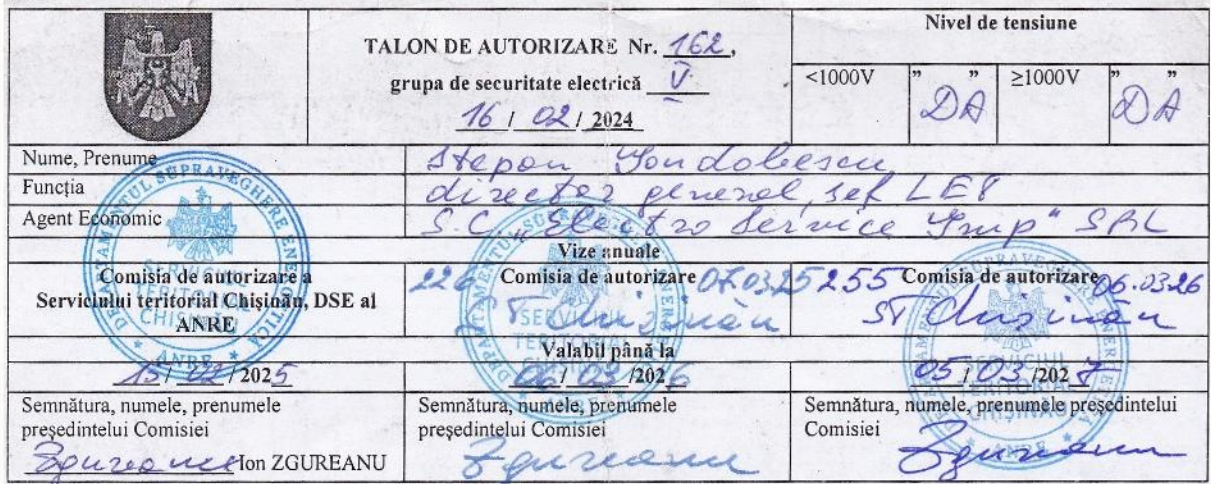 TALON DE AUTORIZARE Nr. 162,
grupa de securitate electrică V
16 / 02 / 2024
Nivel de tensiune
<1000V " DA " ≥1000V " DA "
Nume, Prenume Stepan
Funcția director general, șef LET
Agent Economic S.C. "Electro Service Grup" SRL
Vize anuale
Comisia de autorizare a
Serviciului teritorial Chișinău, DSE al
ANRE
226 Comisia de autorizare 07.03.25
ST Chișinău
255 Comisia de autorizare 06.03.26
ST Chișinău
Valabil până la
15 / 02 / 2025
06 / 03 /2026
05 / 03 /2027
Semnătura, numele, prenumele
președintelui Comisiei
Zgureanu Ion ZGUREANU
Semnătura, numele, prenumele
președintelui Comisiei
Zgureanu
Semnătura, numele, prenumele președintelui
Comisiei
Zgureanu
DEPARTAMENTUL SUPRAVEGHERE ENERGETICĂ
SERVICIUL
TERITORIAL
CHIȘINĂU
* ANRE *